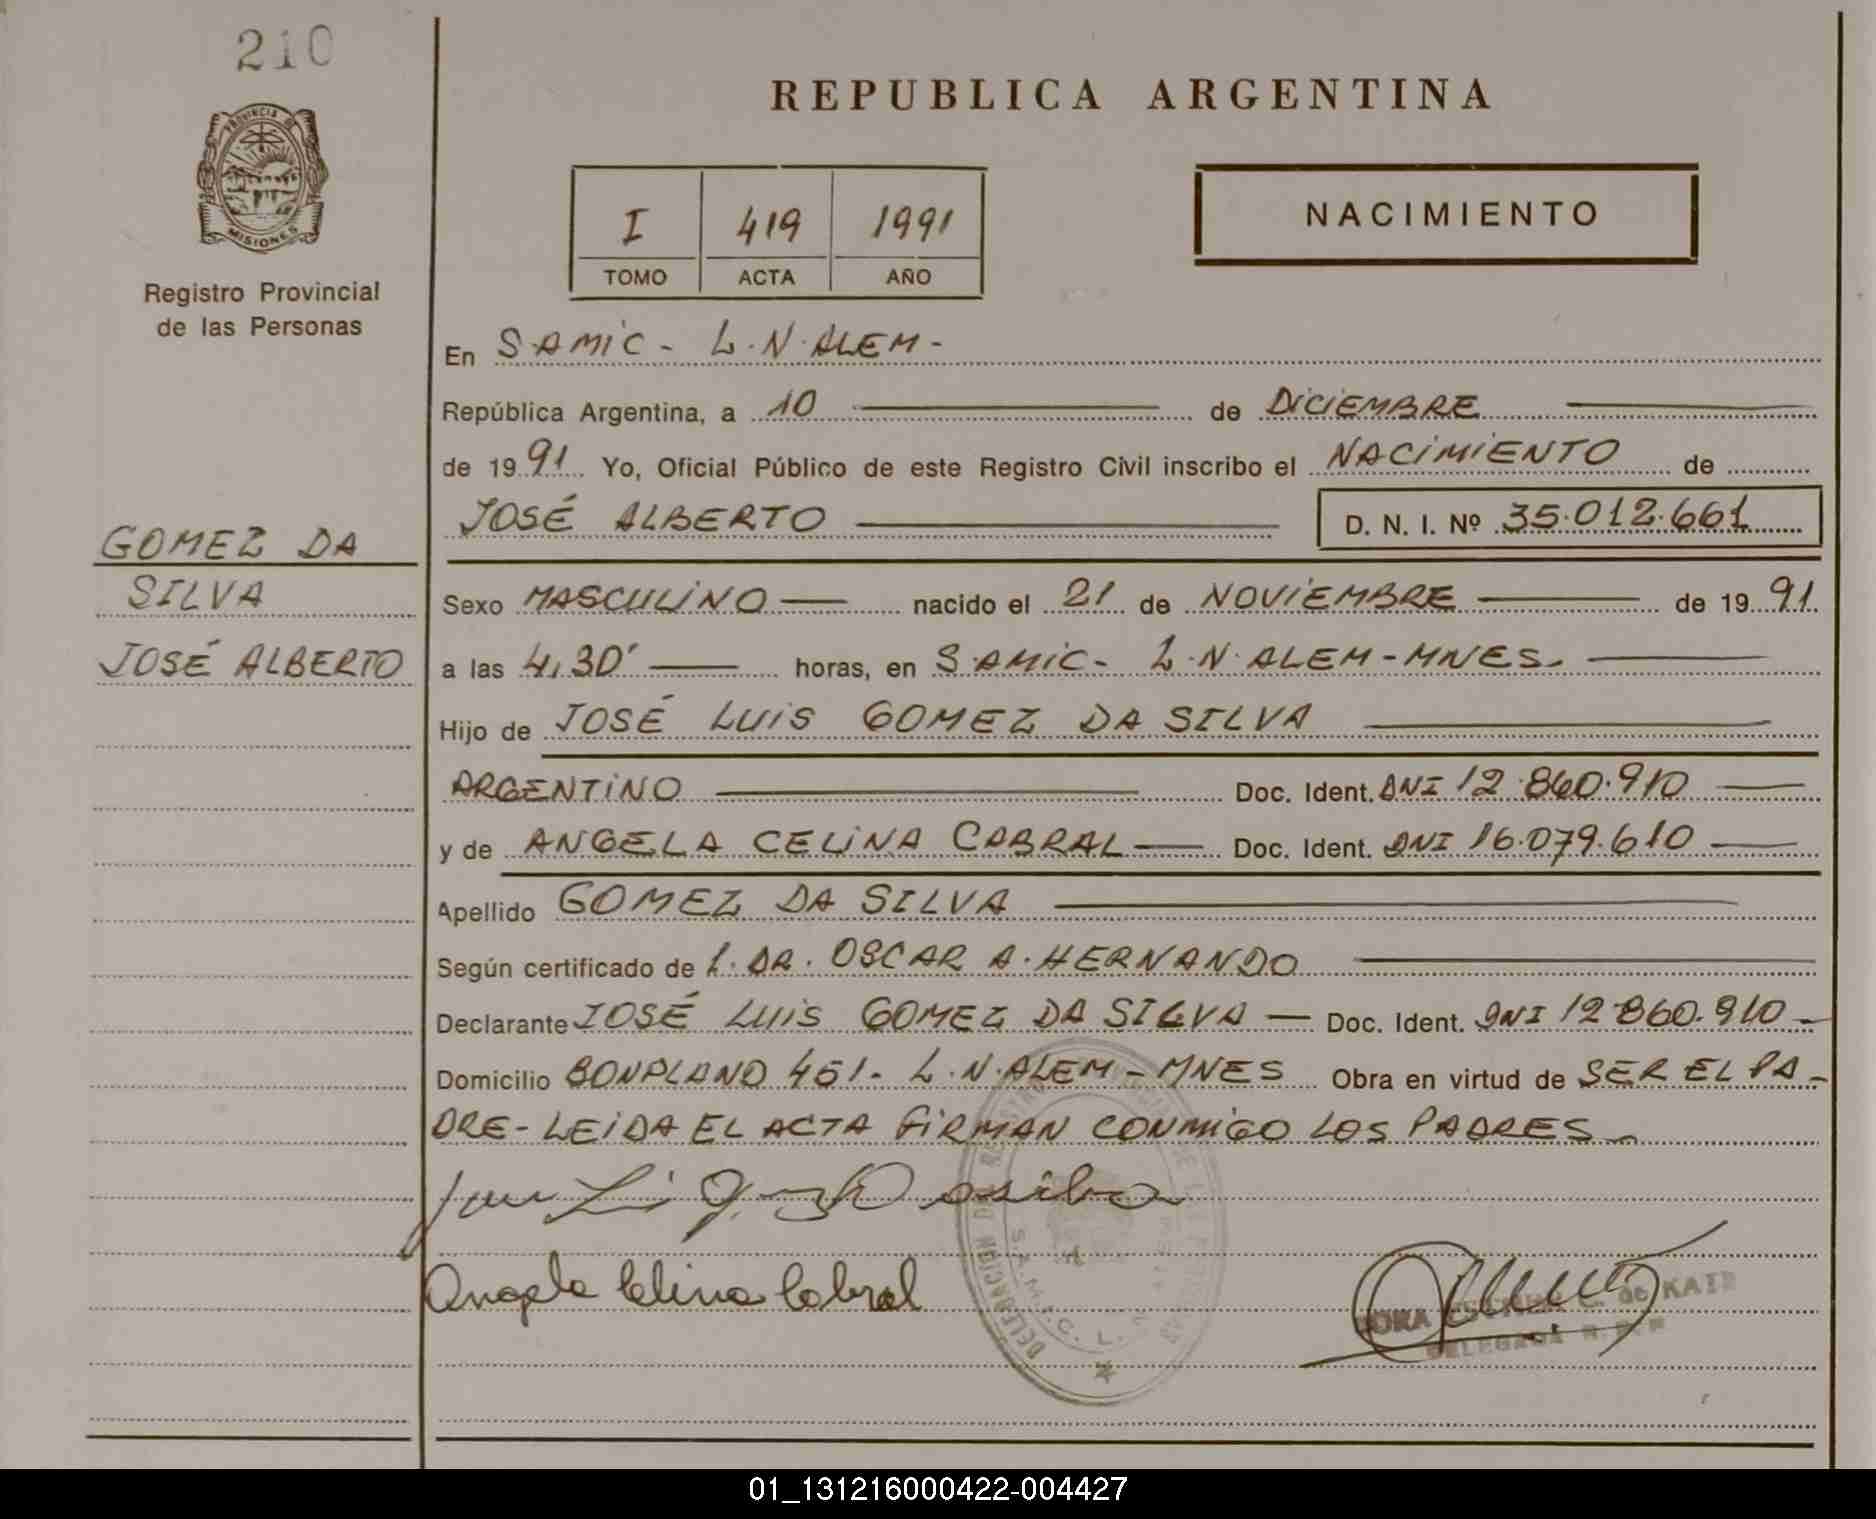 210
REPUBLICA ARGENTINA
PROVINCIA DE
MISIONES
Registro Provincial
de las Personas
I 419 1991
TOMO ACTA AÑO
NACIMIENTO
En S.AMIC - L.N.ALEM-
República Argentina, a 10 de DICIEMBRE
de 1991 Yo, Oficial Público de este Registro Civil inscribo el NACIMIENTO de
JOSÉ ALBERTO D. N. I. Nº 35.012.661
GOMEZ DA
SILVA
JOSÉ ALBERTO
Sexo MASCULINO nacido el 21 de NOVIEMBRE de 1991
a las 4,30' horas, en S.AMIC- L.N.ALEM-MNES.
Hijo de JOSÉ LUIS GOMEZ DA SILVA
ARGENTINO Doc. Ident. DNI 12.860.910
y de ANGELA CELINA CABRAL Doc. Ident. DNI 16.079.610
Apellido GOMEZ DA SILVA
Según certificado de l. DR. OSCAR A. HERNANDO
Declarante JOSÉ LUIS GOMEZ DA SILVA Doc. Ident. DNI 12.860.910
Domicilio BONPLAND 451- L.N.ALEM-MNES Obra en virtud de SER EL PA-
DRE- LEIDA EL ACTA FIRMAN CONMIGO LOS PADRES
Angela Celina Cabral
DELEGACION
S.A.M.I.C. L.N.
DORA C. de
DELEGADA
01_131216000422-004427